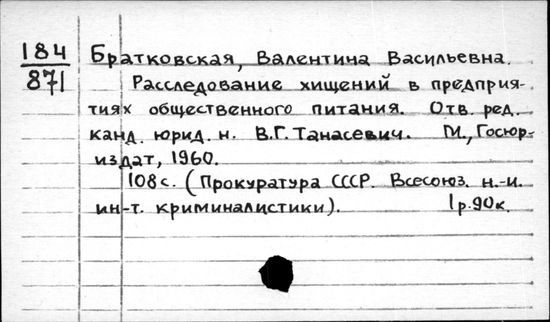 184
871
Братковская, Валентина Васильевна.
Расследование хищений в предприя-
тиях общественного питания. Отв. ред.
канд. юрид. н. В.Г. Танасевич. М., Госюр-
издат, 1960.
108 с. (Прокуратура СССР. Всесоюз. н.-и.
ин-т. криминалистики). 1 р. 90 к.